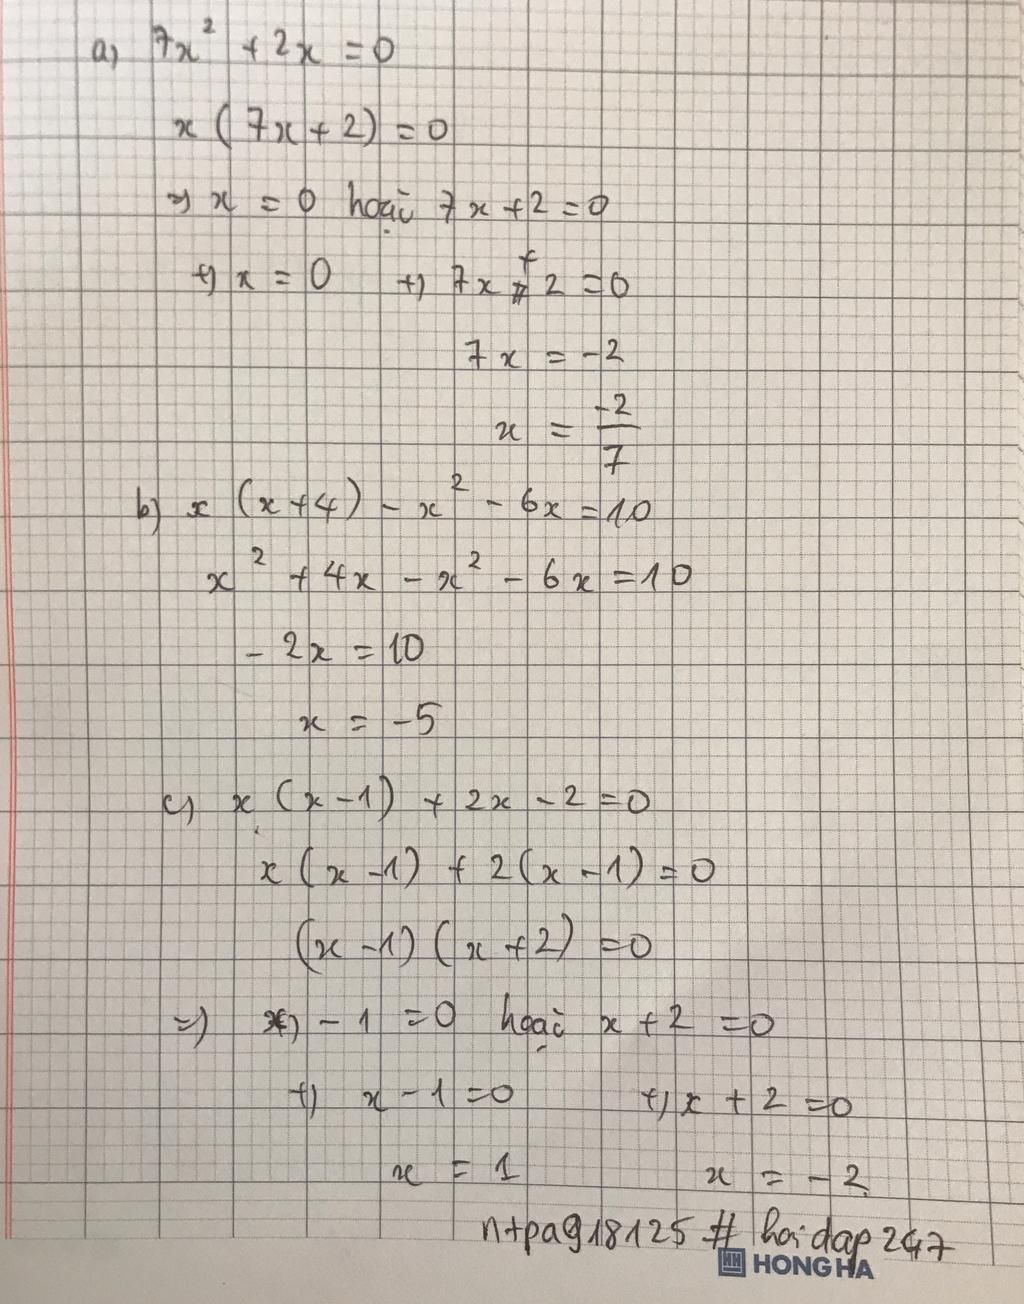 a) 7x² + 2x = 0
x (7x + 2) = 0
=> x = 0 hoặc 7x + 2 = 0
+) x = 0 +) 7x + 2 = 0
7x = -2
x = -2/7
b) x (x + 4) - x² - 6x = 10
x² + 4x - x² - 6x = 10
- 2x = 10
x = -5
c) x (x - 1) + 2x - 2 = 0
x (x - 1) + 2 (x - 1) = 0
(x - 1) (x + 2) = 0
=> x - 1 = 0 hoặc x + 2 = 0
+) x - 1 = 0 +) x + 2 = 0
x = 1 x = -2
ntpag18125 # hoidap247
HONG HA